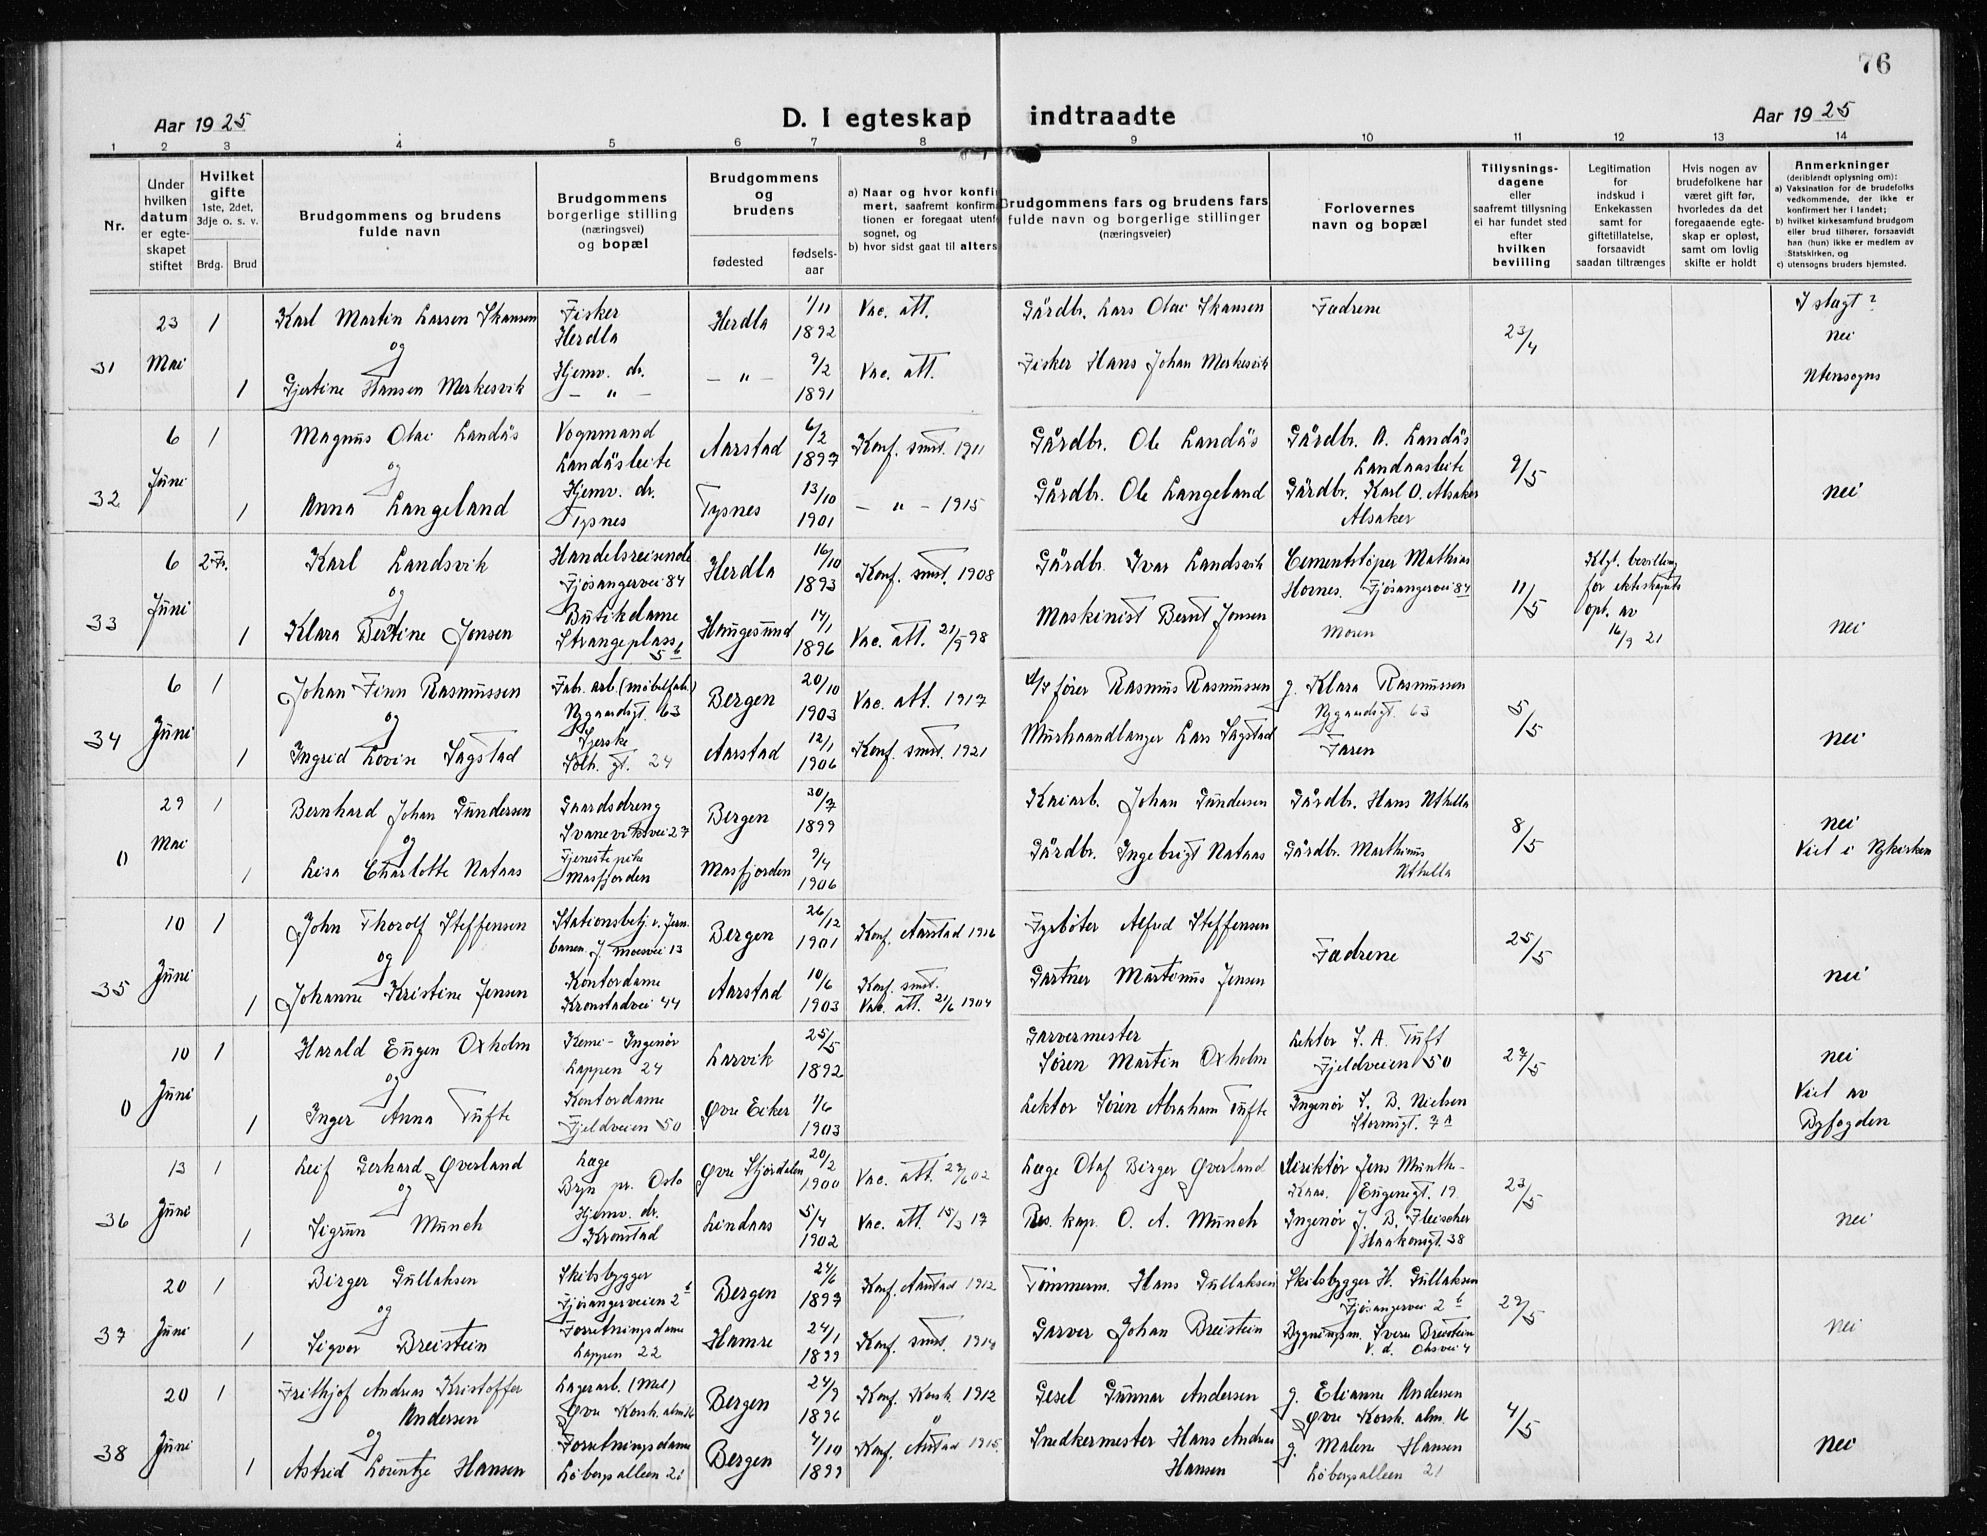 76
Aar 1925
D. I egteskap indtraadte
Aar 1925
1 2 3 4 5 6 7 8 9 10 11 12 13 14
Nr.
Under hvilken datum er egteskapet stiftet
Hvilket gifte 1ste, 2det, 3dje o. s. v.
Brdg. Brud
Brudgommens og brudens fulde navn
Brudgommens borgerlige stilling (næringsvei) og bopæl
Brudgommens og brudens
fødested
fødselsaar
a) Naar og hvor konfirmert, saafremt konfirmationen er foregaat utenfor sognet, og
b) hvor sidst gaat til alters
Brudgommens fars og brudens fars fulde navn og borgerlige stillinger (næringsveier)
Forlovernes navn og bopæl
Tillysningsdagene eller saafremt tillysning ei har fundet sted efter hvilken bevilling
Legitimation for indskud i Enkekassen samt for giftetillatelse, forsaavidt saadan tiltrænges
Hvis nogen av brudefolkene har været gift før, hvorledes da det foregaaende egteskap er opløst, samt om lovlig skifte er holdt
Anmerkninger (deriblandt oplysning om):
a) Vaksination for de brudefolks vedkommende, der ikke er konfirmert her i landet;
b) hvilket kirkesamfund brudgom eller brud tilhører, forsaavidt han (hun) ikke er medlem av Statskirken, og
c) utensogns bruders hjemsted.
31 23 Mai 1 Karl Martin Larsen Skansen Fisker Herdla Herdla 1/11 1892 Vac. att. Gårdbr. Lars Olai Skansen Fadrene 23/4 I slagt? nei
og
1 Gjertine Hansen Merkesvik Hjemv. dr. — " — — " — 9/2 1891 Vac. att. Fisker Hans Johan Merkesvik Utensogns
32 6 Juni 1 Magnus Olai Landås Vognmand Landåsleite Aarstad 6/2 1897 Konf. smst. 1911 Gårdbr. Ole Landås Gårdbr. A. Landås Landaasleite 9/5
og
1 Anna Langeland Hjemv. dr. Tysnes Tysnes 13/10 1901 — " — 1915 Gårdbr. Ole Langeland Gårdbr. Karl O. Alsaker Alsaker nei
33 6 Juni 2 F. Karl Landsvik Handelsreisende Fjøsangervei 84 Herdla 16/10 1893 Konf. smst. 1908 Gårdbr. Ivar Landsvik Cementstøper Mathias Hornes. Fjøsangervei 84 11/5 Kgl. bevilling for ekteskapets opl. av 16/9 21
og
1 Klara Bertine Jonsen Butikdame Strangeplass 5 b Haugesund 14/1 1896 Vac. att. 21/9 98 Maskinist Bernt Jonsen Moren nei
34 6 Juni 1 Johan Finn Rasmussen Fab. arb. (møbelfab.) Nygaardsgt. 63 Bergen 20/10 1903 Vac. att. 1917 fører Rasmus Rasmussen g. Klara Rasmussen Nygaardsgt. 63 5/5
og
1 Ingrid Lovise Sagstad Syerske Solh. gt. 24 Aarstad 12/1 1906 Konf. smst. 1921 Murhaandlanger Lars Sagstad Faren nei
0 29 Mai 1 Bernhard Johan Gundersen Gaardsdreng Svaneviksvei 27 Bergen 30/7 1899 Kaiarb. Johan Gundersen Gårdbr. Hans Uthella 8/5 nei
og
1 Lisa Charlotte Nataas Tjenestepike Masfjorden Masfjorden 9/4 1906 Gårdbr. Ingebrigt Nataas Gårdbr. Marthinus Uthella Viet i Nykirken
35 10 Juni 1 John Thorolf Steffensen Stationsbetj. v. Jernbanen. J. Moesvei 13 Bergen 26/12 1901 Konf. Aarstad 1916 Fyrbøter Alfred Steffensen Fadrene 25/5
og
1 Johanne Kristine Jensen Kontordame Kronstadvei 44 Aarstad 10/6 1903 Konf. smst. Vac. att. 21/6 1904 Gartner Martinus Jensen nei
0 10 Juni 1 Harald Eugen Oxholm Kemi-Ingenør Lappen 24 Larvik 25/5 1892 Garvermester Søren Martin Oxholm Lektor S. A. Tuft Fjeldveien 50 27/5 nei
og
1 Inger Anna Tufte Kontordame Fjeldveien 50 Øvre Eiker 1/6 1903 Lektor Søren Abraham Tufte Ingenør S. B. Nielsen Stormsgt. 7 A Viet av Byfogden
36 13 Juni 1 Leif Gerhard Øverland Læge Bryn pr. Oslo Øvre Stjørdalen 20/2 1900 Vac. att. 27/6 02 Læge Olaf Birger Øverland direktør Jens Munthe-Kaas. Eugenigt. 19 23/5
og
1 Sigrun Munch Hjemv. dr. Kronstad Lindaas 5/4 1902 Vac. att. 15/3 17 Res. kap. O. A. Munch Ingenør J. B. Fleischer Haakonsgt. 38 nei
37 20 Juni 1 Birger Gullaksen Skibsbygger Fjøsangerveien 2 b Bergen 24/6 1897 Konf. Aarstad 1912 Tømmerm. Hans Gullaksen Skibsbygger H. Gullaksen Fjøsangervei 2 b 29/5
og
1 Sigvor Breistein Forretningsdame Lappen 22 Hamre 24/1 1899 Konf. smst. 1914 Garver Johan Breistein Bygningsm. Sverre Breistein V. d. Ohsvei 4 nei
38 20 Juni 1 Frithjof Andreas Kristoffer Andersen Lagerarb. (Mel) Øvre Korsk. alm. 16 Bergen 24/9 1896 Konf. Korsk. 1912 Gesel Gunnar Andersen g. Elianne Andersen Øvre Korsk. alm. 16 4/5
og
1 Astrid Lorentze Hansen Forretningsdame Løbergsalleen 21 Bergen 4/10 1899 Konf. Årstad 1915. Snedkermester Hans Andreas Hansen g. Malene Hansen Løbergsalleen 21 nei